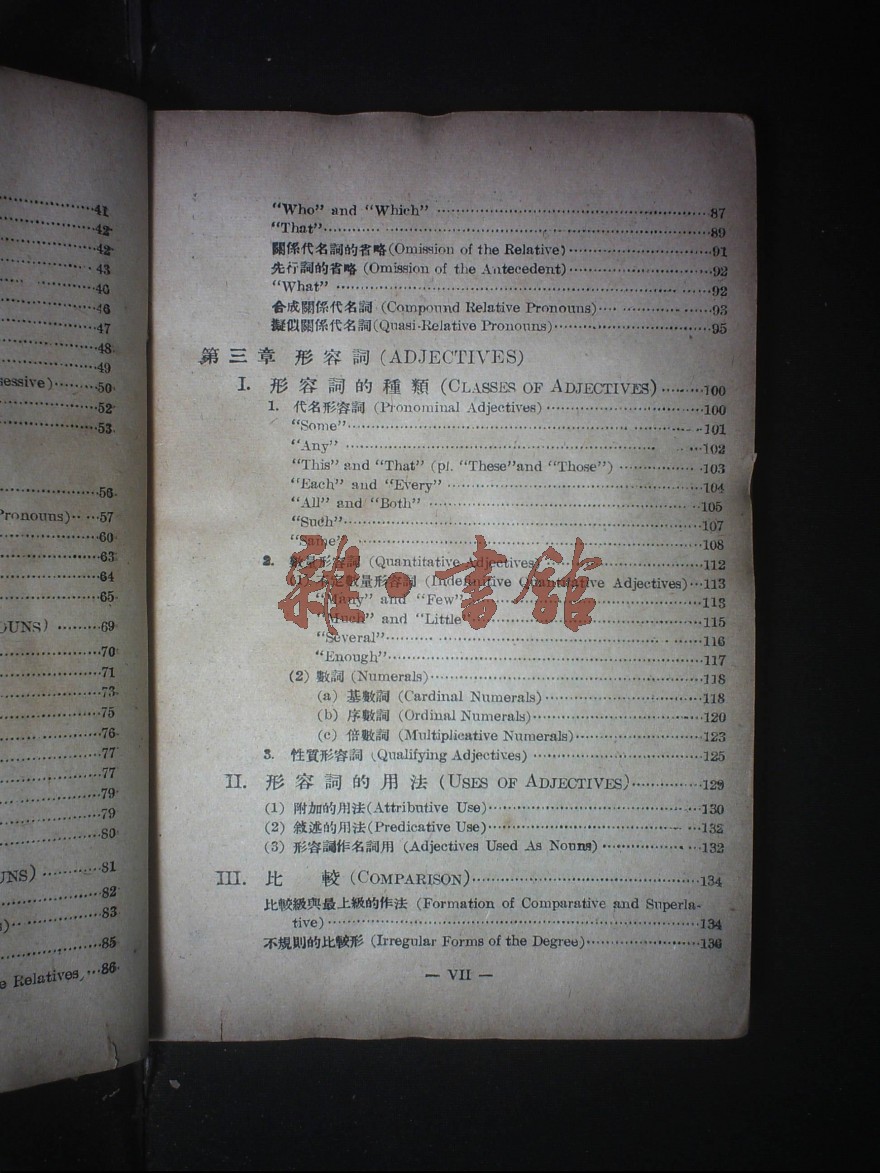 41
42
42
43
46
46
47
48
49
sessive)..........50
52
53
56
Pronouns).....57
60
63
64
65
OUNS).........69
70
71
73
75
76
77
77
79
79
80
81
82
83
85
e Relatives...86
"Who" and "Which" ..........87
"That"..........89
關係代名詞的省略(Omission of the Relative)..........91
先行詞的省略 (Omission of the Antecedent)..........92
"What" ..........92
合成關係代名詞 (Compound Relative Pronouns)..........93
擬似關係代名詞(Quasi-Relative Pronouns)..........95
第三章 形容詞 (ADJECTIVES)
I. 形容詞的種類 (CLASSES OF ADJECTIVES)..........100
1. 代名形容詞 (Pronominal Adjectives)..........100
"Some"..........101
"Any" ..........102
"This" and "That" (pl. "These"and "Those")..........103
"Each" and "Every" ..........104
"All" and "Both" ..........105
"Such"..........107
"Same" ..........108
2. 數量形容詞 (Quantitative Adjectives)..........112
(1) 不定數量形容詞 (Indefinitive Quantitative Adjectives)...113
"Many" and "Few"..........113
"Much" and "Little"..........115
"Several"..........116
"Enough"..........117
(2) 數詞 (Numerals)..........118
(a) 基數詞 (Cardinal Numerals)..........118
(b) 序數詞 (Ordinal Numerals)..........120
(c) 倍數詞 (Multiplicative Numerals)..........123
3. 性質形容詞 (Qualifying Adjectives)..........125
II. 形容詞的用法 (USES OF ADJECTIVES)..........129
(1) 附加的用法(Attributive Use)..........130
(2) 敘述的用法(Predicative Use)..........132
(3) 形容詞作名詞用 (Adjectives Used As Nouns)..........132
III. 比較 (COMPARISON)..........134
比較級與最上級的作法 (Formation of Comparative and Superla-
tive)..........134
不規則的比較形 (Irregular Forms of the Degree)..........136
— VII —
雜·書館